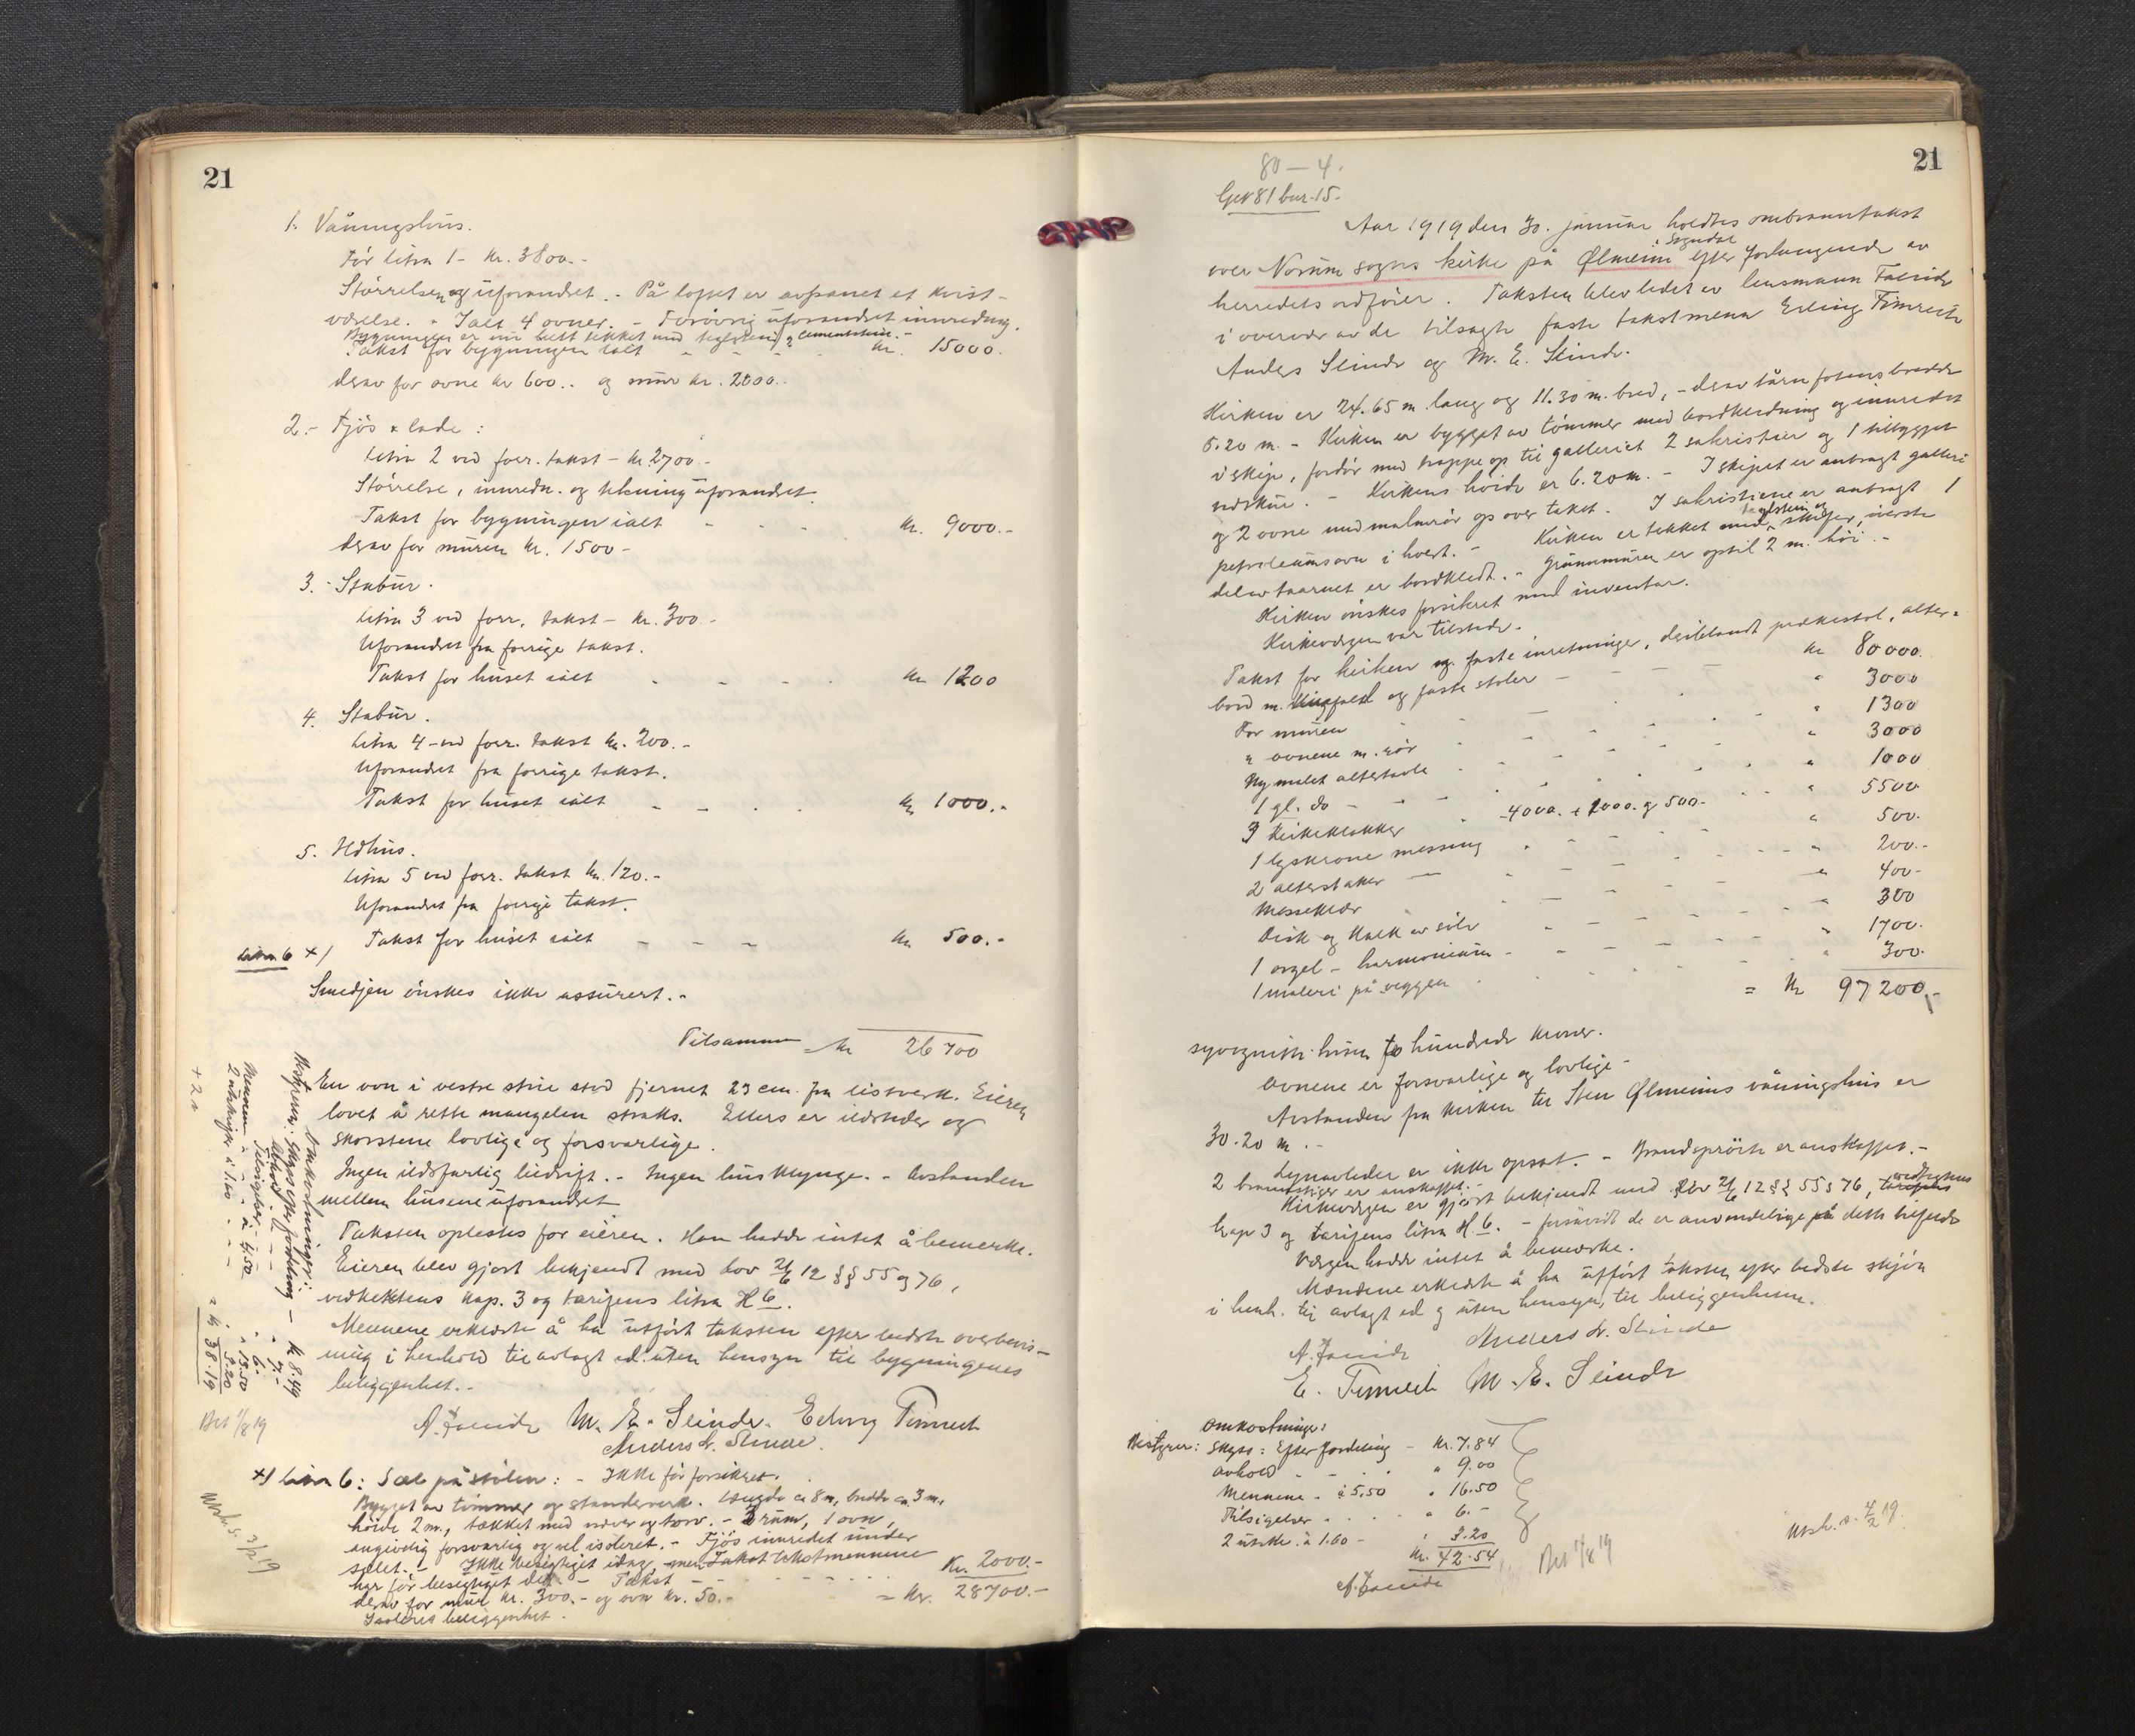 21
1. Våningshus.
Før litra 1 – kr. 3800.-
Størrelsen og uforandret. - På loftet er avpanet et kvist-
værelse. - Ialt 4 ovner. - Forøvrig uforandret innredning.
Bygningen er nu helt tekket med teglsten og cementsten. -
Takst for bygningen ialt - - - - kr. 15000.
derav for ovne kr 600.. og mur kr. 2000..
2.- Fjøs & lade :
Litra 2 ved forr. takst – kr. 2700.-
Størrelse, innredn. og tekning uforandret.
Takst for bygningen ialt - - - kr. 9000.-
derav for muren kr. 1500 -
3.- Stabur.
Litra 3 ved forr. takst – kr. 300.-
Uforandret fra forrige takst.
Takst for huset ialt - - - - kr 1200
4. Stabur.
Litra 4 - ved forr. takst kr. 200.-
Uforandret fra forrige takst.
Takst for huset ialt - - - - kr 1000.-
5. Ildhus.
Litra 5 ved forr. takst kr. 120.-
Uforandret fra forrige takst.
Litra 6 x) Takst for huset ialt - - - kr 500.-
Smedjen ønskes ikke assurert.-
Tilsammen = kr 26700
En ovn i vestre stue stod fjernet 23 cm. fra listverk. Eieren
lovet å rette mangelen straks. Ellers er ildsteder og
skorstene lovlige og forsvarlige.
Ingen ildsfarlig bedrift. - Ingen husklynge. - Avstanden
mellem husene uforandret
Taksten oplestes for eieren. Han hadde intet å bemerke.
Eieren blev gjort bekjendt med lov 21/6 12 §§ 55 og 76,
vedtektens kap. 3 og tarifens litra H 6.
Mennene erklærte å ha utført taksten efter bedste overbevis-
ning i henhold til avlagt ed. uten hensyn til bygningenes
beliggenhet.-
A. Falnide M. E. Slinde. Erling Timreit
Anders A. Slinde.
Omkostninger:
Bestyrer: Skyss efter fordeling – kr 8.49
Avhold - - - 7.-
Tilsigelser - - 6.-
Mennene - - à 4.50 - 13.50
2 utskrifter à 1.60 - - - 3.20
= kr 38.19
+ 2.
Bet 1/8 19
x) Litra 6: Sel på stølen: - Ikke før forsikret.
Bygget av tømmer og standerverk. Længde ca 8 m, bredde ca. 3 m,
høide 2 m., tækket med never og torv. - 3 rum, 1 ovn,
angivelig forsvarlig og vel isoleret. - Fjøs innredet under
selet. - Ikke besigtiget idag, men takstmennene
har før besigtiget det. - Takst - - - - Kr. 2000.-
derav for mur kr. 300.- og ovn kr. 50.- = Kr. 28700.-
Isoleret beliggenhet.
21
80 – 4.
Gnr 81 bnr. 15.
Aar 1919 den 30. januar holdtes ombranntakst
i Sogndal
over Norum sogns kirke på Ølmeim efter forlangende av
herredets ordfører. Taksten blev ledet av lensmann Falnide
i overvær av de tilsagte faste takstmenn Erling Timreite
Anders Slinde og M. E. Slinde.
Kirken er 24.65 m. lang og 11.30 m. bred, - derav tårnfotens bredde
5.20 m. - Kirken er bygget av tømmer med bordklædning og innredet
i skip, fordør med trappe op til galleriet 2 sakristier og 1 tilbygget
vedskur. - Kirkens høide er 6.20 m. - I skipet er anbragt galleri
og 2 ovne med malmrør op over taket. I sakristiene er anbragt 1
petroleumsovn i hvert. - Kirken er tekket med teglsten og skifer, øverste
del av taarnet er bordklædt. - Grunnmuren er optil 2 m. høi. -
Kirken ønskes forsikret med inventar.
Kirkevergen var tilstede.
Takst for kirken og faste inretninger, deriblandt prækestol, alter-
bord m. knefald og faste stoler - - - kr 80000.
For muren " 3000
" ovnene m. rør " 1300
Ny malet altertavle " 3000
1 gl. do - - " 1000
3 kirkeklokker - 4000. + 1000. og 500.- " 5500
1 lyskrone messing " 500.
2 alterstaker " 200.-
Messeklær " 400-
Disk og kalk av sølv " 300
1 orgel - harmonium " 1700.
1 maleri på veggen " 300.
= kr 97200.-
syvognitti-tusen to hundrede kroner.
Ovnene er forsvarlige og lovlige -
Avstanden fra kirken til Sten Ølmeims våningshus er
30.20 m. -
Lynavleder er ikke opsat. - Brandsprøite er anskaffet.-
2 brandstiger er anskaffet. -
Kirkevergen er gjort bekjendt med lov 21/6 12 §§ 55 & 76, vedtektens
kap 3 og tarifens litra H 6. - forsåvidt de er anvendelige på dette tilfælde
Vergen hadde intet å bemerke.
Mændene erklærte å ha utført taksten efter bedste skjøn
i henh. til avlagt ed og uten hensyn til beliggenheten.
A. Falnide Anders A. Slinde
E. Timreit M. E. Slinde
Omkostninger:
Bestyrer: Skyss: Efter fordeling – kr. 7.84
avhold - - - " 9.00
Mennene. à 5.50 " 16.50
Tilsigelser . . . " 6.-
2 utskr. à 1.60 - " 3.20
kr. 42.54
A. Falnide
Bet 1/8 19
Utsk. s. 4/2 19.